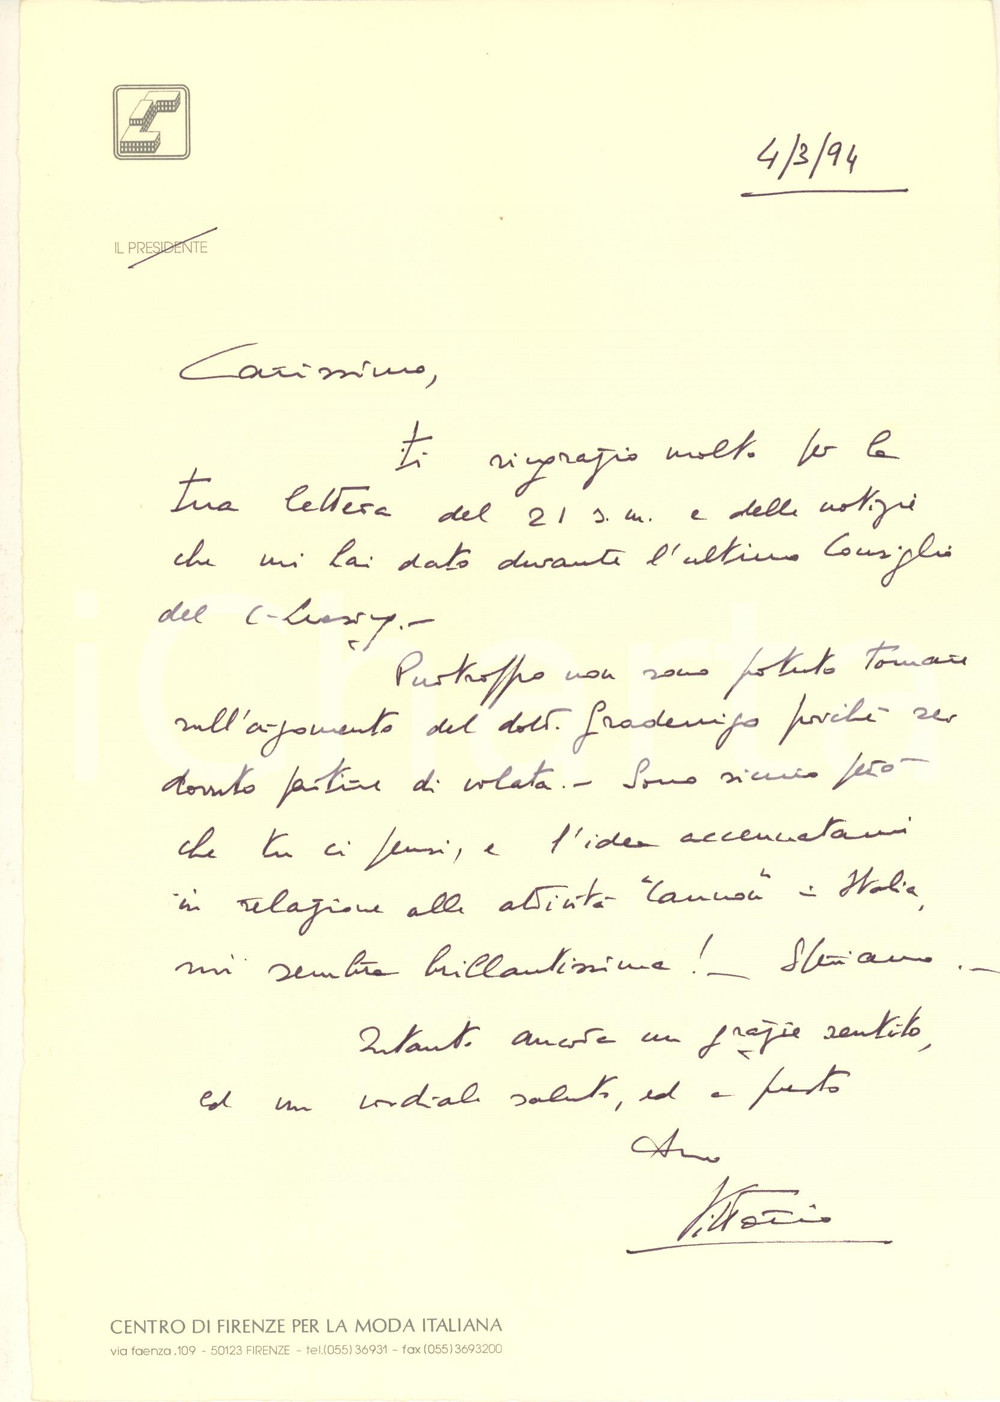 4/3/94
IL PRESIDENTE
Carissimo,
ti ringrazio molto per la
tua lettera del 21 s.m. e delle notizie
che mi hai dato durante l'ultimo Consiglio
del C-Leasing.-
Purtroppo non sono potuto tornare
sull'argomento del dott. Gradenigo poiché
dovuto partire di volata.- Sono sicuro però
che tu ci pensi, e l'idea accennatami
in relazione alle attività "Cannon" in Italia,
mi sembra brillantissima!- Speriamo.-
Intanto ancora un grazie sentito,
ed un cordiale saluto, ed a presto
Vittorio
CENTRO DI FIRENZE PER LA MODA ITALIANA
via faenza.109 - 50123 FIRENZE - tel.(055)36931 - fax(055)3693200
iCharta